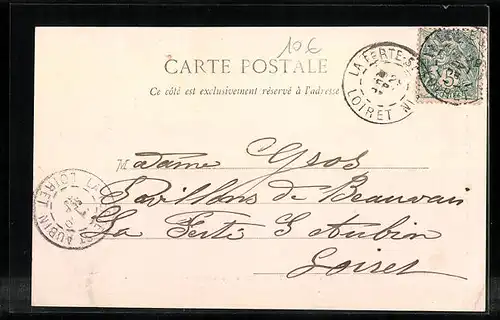 10€
CARTE POSTALE
Ce côté est exclusivement réservé à l'adresse
LA FERTE-ST
LOIRET
Madame Gros
Pavillons de Beauvais
La Ferté St Aubin
Loiret
ST AUBIN
LOIRET